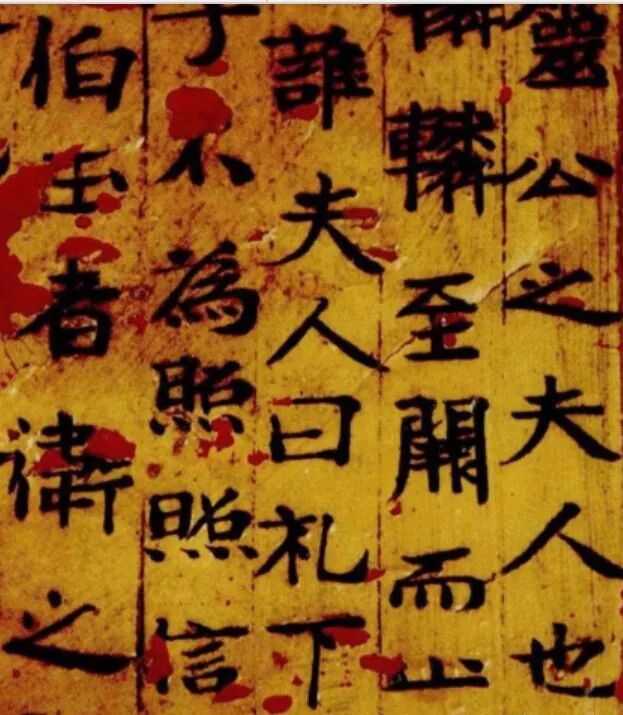 靈公之夫人也
轔轔至關而止
誰夫人曰礼下
子不為照照信
伯玉者衛之